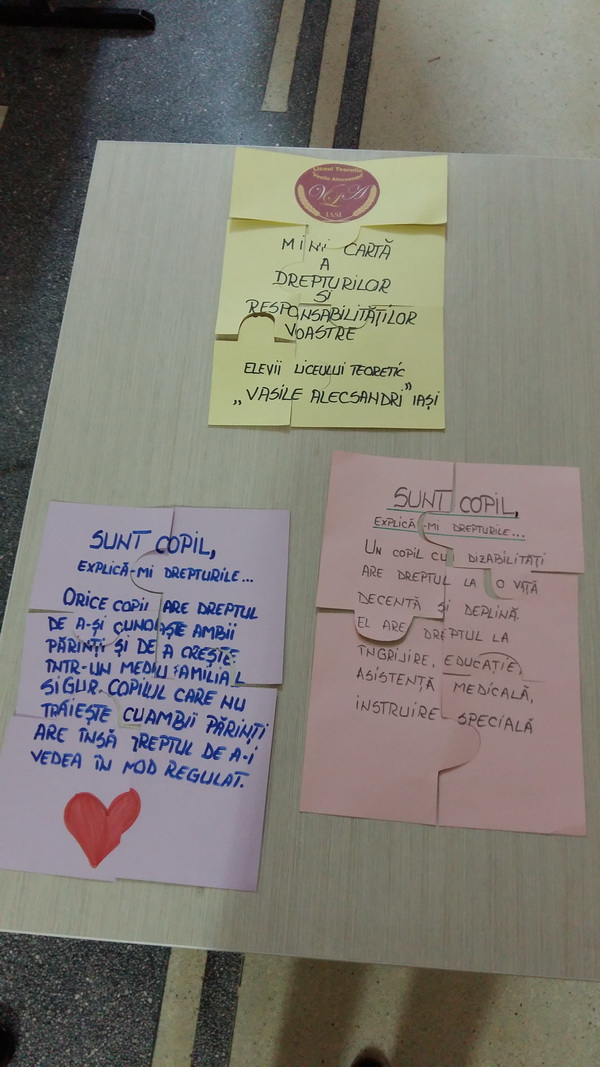 Liceul Teoretic
Vasile Alecsandri
VLA
IASI
MINI CARTĂ
A
DREPTURILOR
ȘI
RESPONSABILITĂȚILOR
VOASTRE
ELEVII LICEULUI TEORETIC
„VASILE ALECSANDRI” IAȘI
SUNT COPIL,
EXPLICĂ-MI DREPTURILE...
ORICE COPIL ARE DREPTUL
DE A-ȘI CUNOAȘTE AMBII
PĂRINȚI ȘI DE A CREȘTE
ÎNTR-UN MEDIU FAMILIAL
SIGUR. COPILUL CARE NU
TRĂIEȘTE CU AMBII PĂRINȚI
ARE ÎNSĂ DREPTUL DE A-I
VEDEA ÎN MOD REGULAT.
SUNT COPIL,
EXPLICĂ-MI DREPTURILE...
UN COPIL CU DIZABILITĂȚI
ARE DREPTUL LA O VIAȚĂ
DECENTĂ ȘI DEPLINĂ.
EL ARE DREPTUL LA
ÎNGRIJIRE, EDUCAȚIE,
ASISTENȚĂ MEDICALĂ,
INSTRUIRE SPECIALĂ